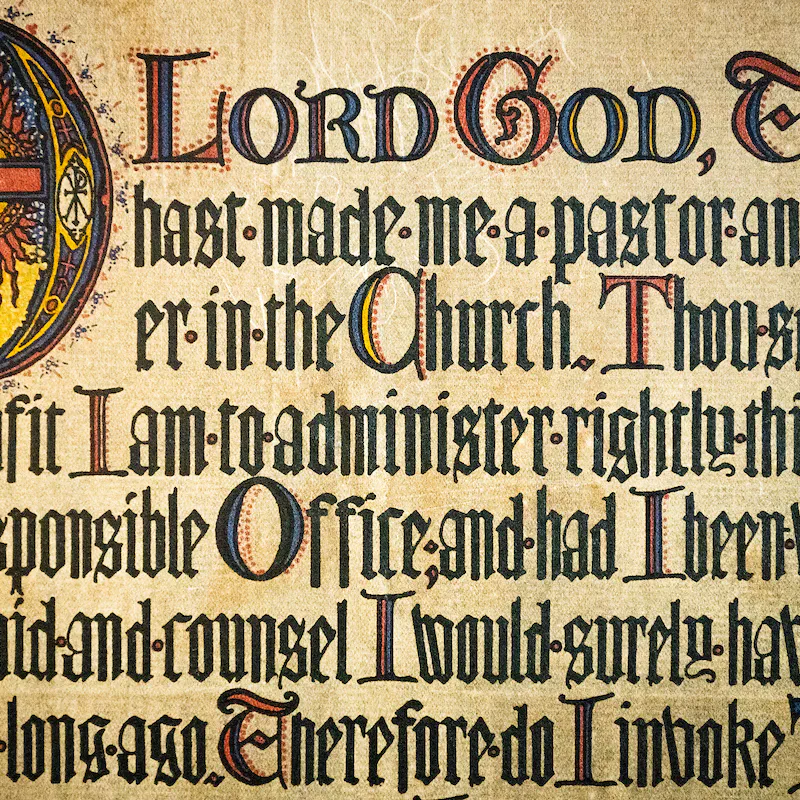 LORD GOD, T
hast·made·me·a·pastor·an
er·in·the Church. Thou·s
fit I am·to·administer·rightly·thi
sponsible Office;and·had I been·
aid·and·counsel I would·surely·hav
·long·ago. Therefore·do I invoke